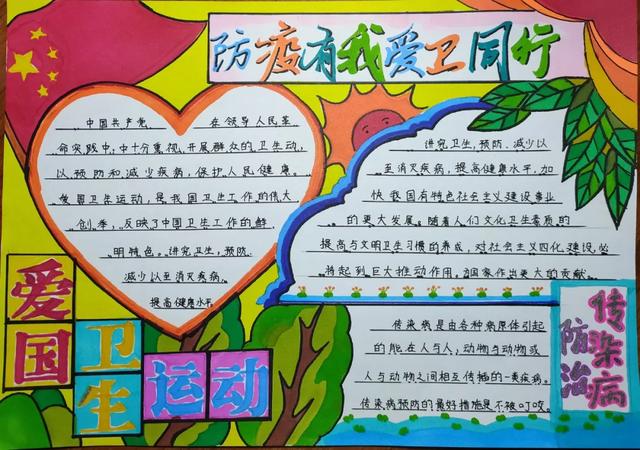 防疫有我爱卫同行
中国共产党 在领导人民革
命实践中,中十分重视,开展群众的卫生动,
以预防和减少疾病,保护人民健康。
爱国卫生运动,是我国卫生工作的伟大
创季,反映了中国卫生工作的鲜
明特色。讲究卫生,预防
减少以至消灭疾病,
提高健康水平
讲究卫生、预防、减少以
至消灭疾病,提高健康水平,加
快我国有特色社会主义建设事业
的更大发展。随着人们文化卫生素质的
提高与文明卫生习惯的养成,对社会主义四化建设,必
将起到巨大推动作用,为国家作出更大的贡献。
爱国卫生运动
传染病是由各种病原体引起
的能在人与人,动物与动物或
人与动物之间相互传播的一类疾病。
传染病预防的最好措施是不被叮咬。
传染病
防治